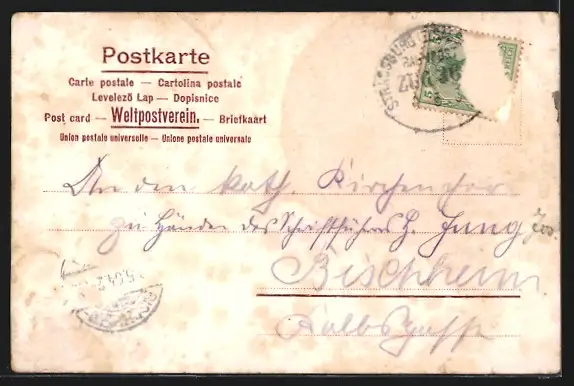 Postkarte
Carte postale — Cartolina postale
Levelező Lap — Dopisnice
Post card — Weltpostverein. — Briefkaart
Union postale universelle — Unione postale universale
STRASSBURG
ZUG
An den kath. Kirchenchor
zu Händen des Schriftführers H. Jung Jos.
Bischheim
Kalbsgasse